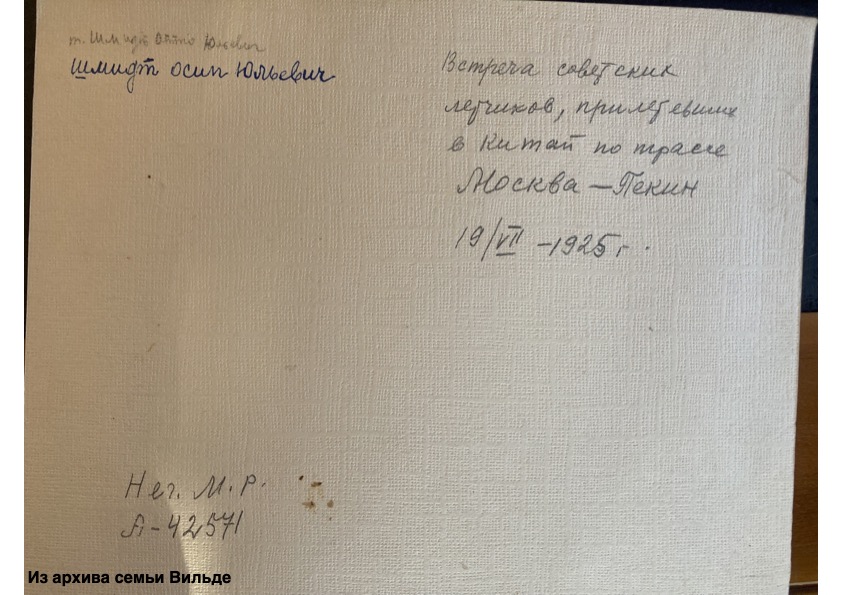 т. Шмидт Отто Юльевич
Шмидт Осип Юльевич
Встреча советских
летчиков, прилетевших
в Китай по трассе
Москва – Пекин
19/VII – 1925 г.
Нег. М.Р.
А-42571
Из архива семьи Вильде